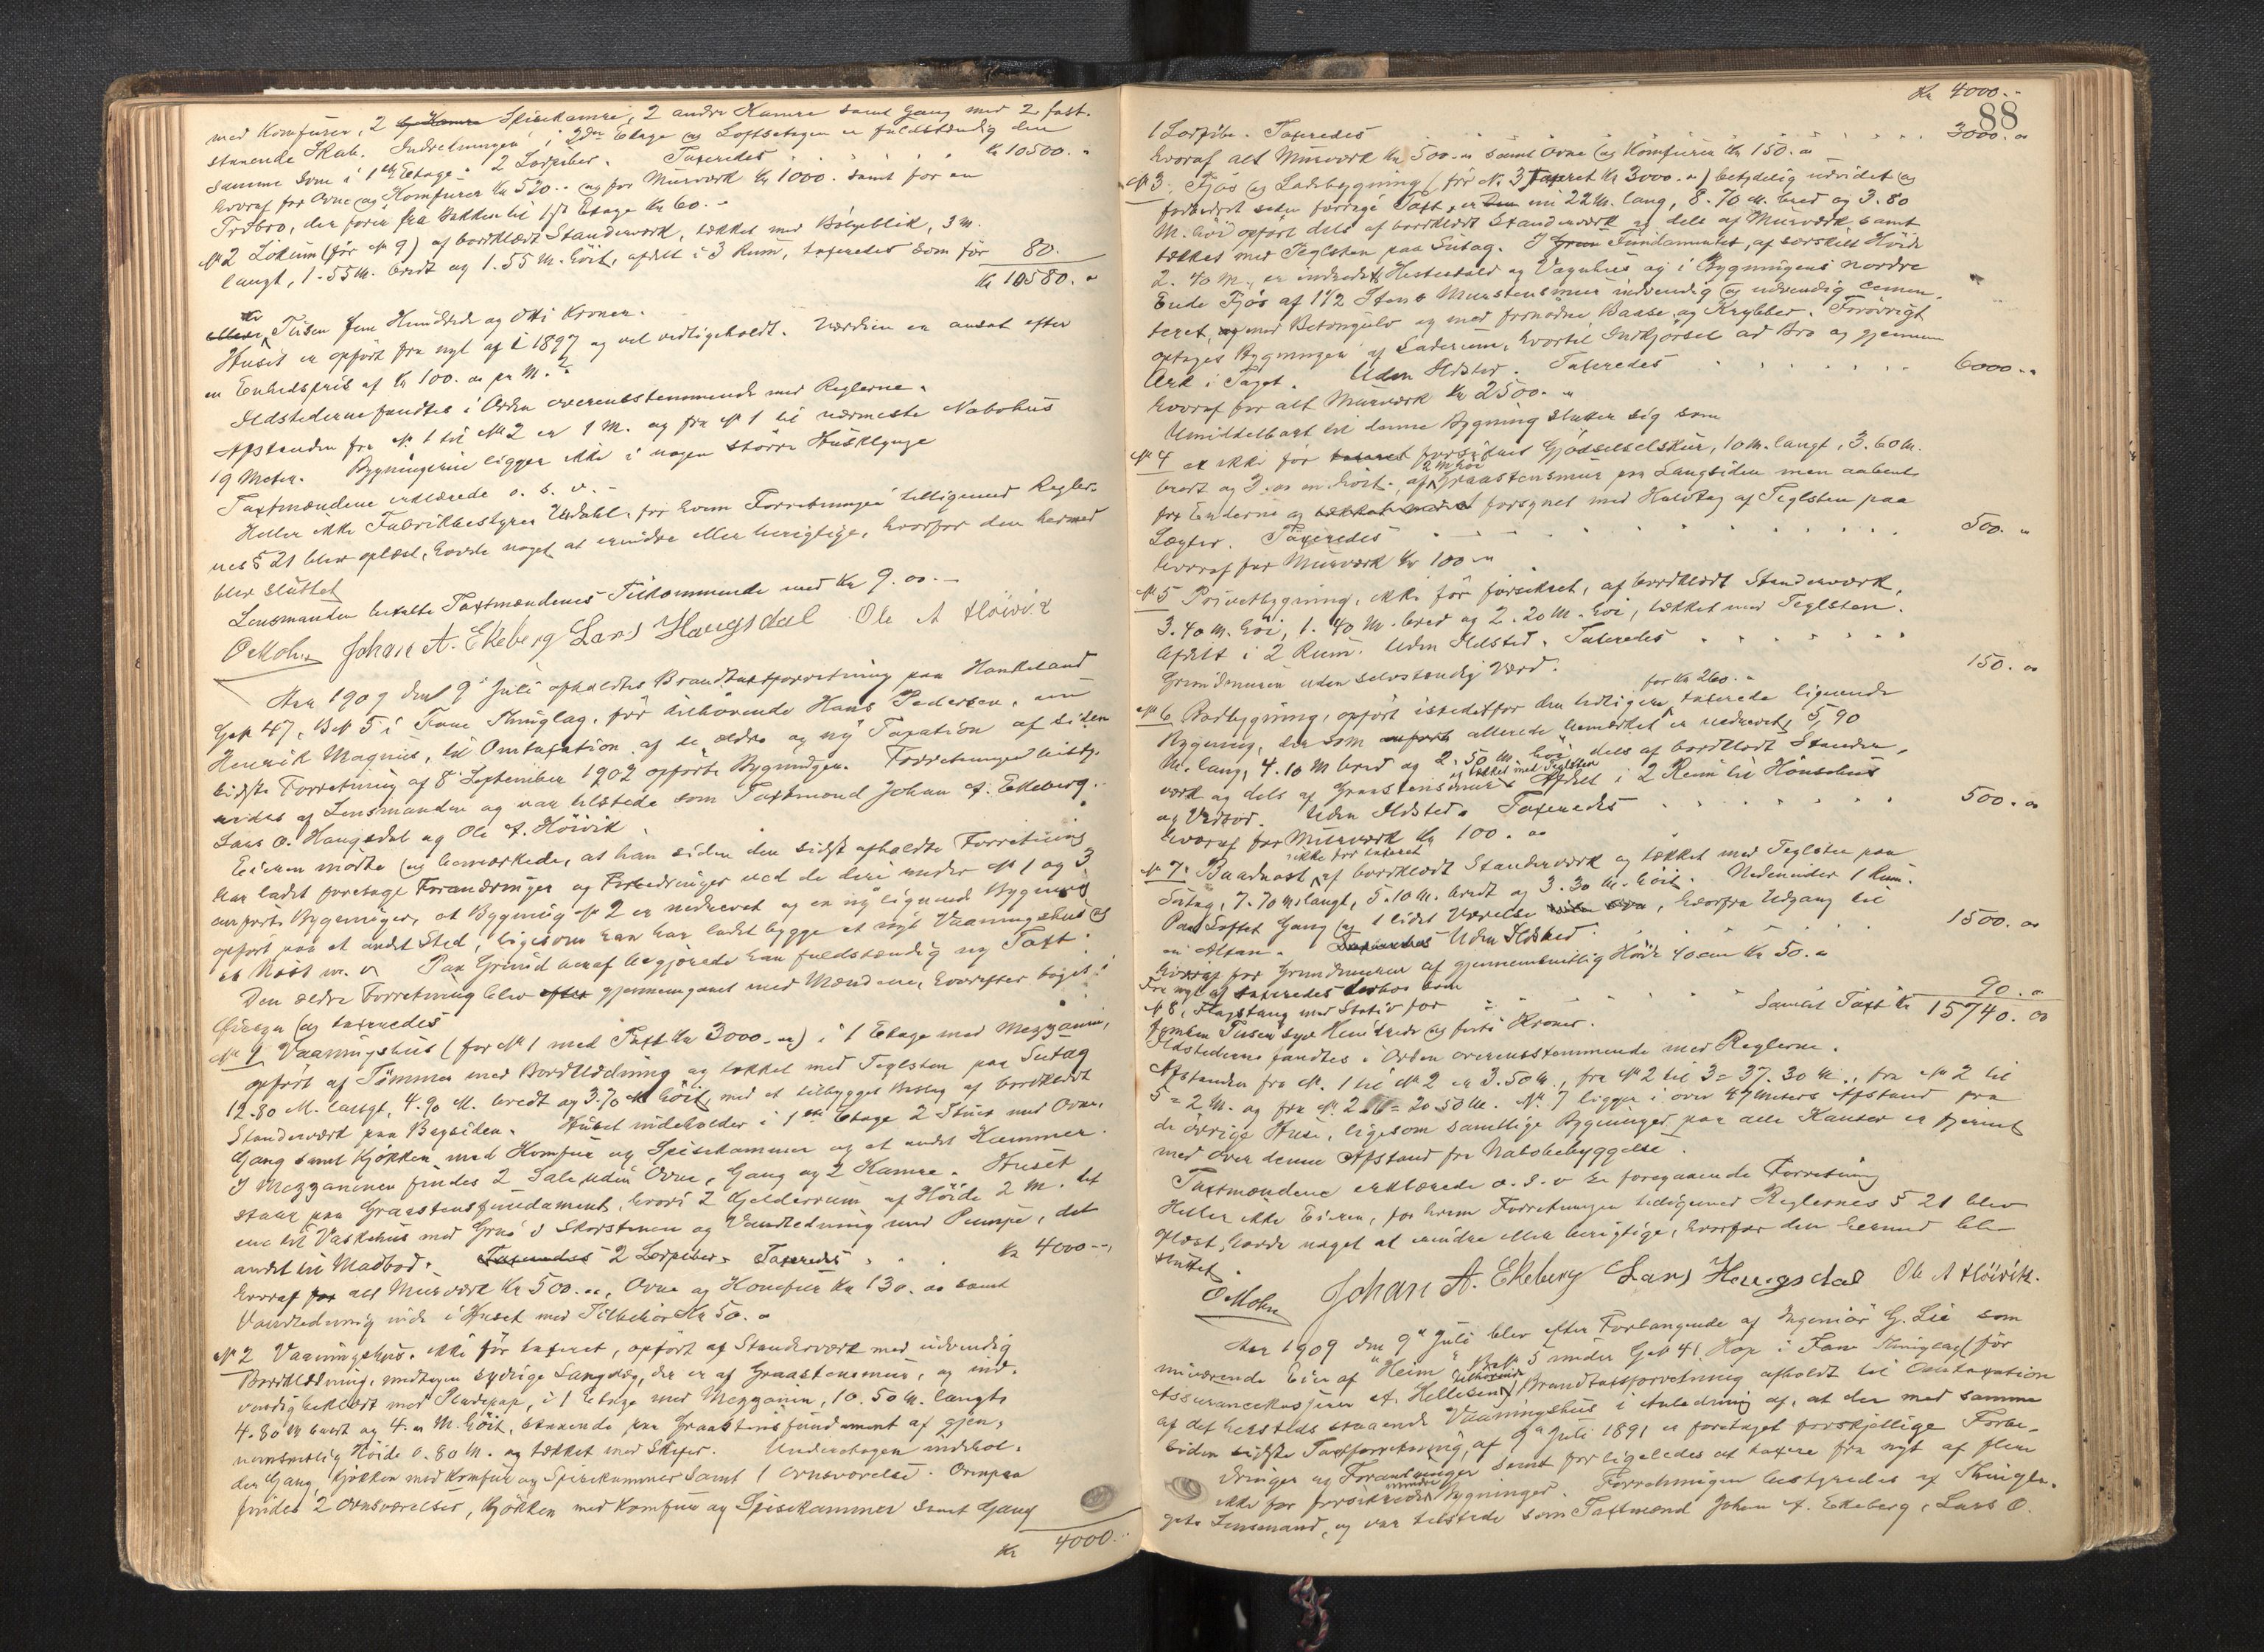 med Komfurer, 2 Spisekamre, 2 andre Kamre samt Gang med 2 fast-
staaende Skab. Indretningen i 2den Etage og Loftsetagen er fuldstændig den
samme som i 1ste Etage. 2 Lørpiber. Taxeredes Kr 10500. "
hvoraf for Ovne og Komfurer Kr 520.. og for Murværk Kr 1000. samt for en
Træbro, der fører fra Bakken til 1ste Etage Kr 60. "
No 2 Lokum (før No 9) af bordklædt Standerværk, tækket med Bølgeblik, 3 m.
langt, 1.55 M. bredt og 1.55 M. høit, afdelt i 3 Rum, taxeredes som før 80.
Kr 10580. "
Ti Tusen fem Hundrede og Otti Kroner.
Huset er opført fra nyt af i 1897 og vel vedligeholdt. Værdien er ansat efter
en Enhedspris af Kr 100. oo pr M.2
Ildstederne fandtes i Orden overensstemmende med Reglerne.
Afstanden fra No 1 til No 2 er 1 M. og fra No 1 til nærmeste Nabohus
19 Meter. Bygningerne ligger ikke i nogen større Husklynge
Taxtmændene erklærede o. s. v. -
Heller ikke Fabrikbestyrer Updahl, for hvem Forretningen tilligemed Regler-
nes § 21 blev oplæst, havde noget at erindre eller berigtige, hvorfor den hermed
blev sluttet
Lensmanden betalte Taxtmændenes Tilkommende med Kr 9.00. -
O Mohn Johan A. Ekeberg Lars Haugsdal Ole A Høivik
Aar 1909 den 9de Juli afholdtes Brandtaxtforretning paa Haukeland
Gno 47, Bno 5 i Fane Thinglag, før tilhørende Hans Pedersen, nu
Henrik Magnus, til Omtaxation af de ældre og ny Taxation af siden
sidste Forretning af 8de September 1902 opførte Bygninger. Forretningen besty-
redes af Lensmanden og var tilstede som Taxtmænd Johan A. Ekeberg,
Lars O. Haugsdal og Ole A. Høivik.
Eieren mødte og bemærkede, at han siden den sidst afholdte Forretning
har ladet foretage Forandringer og Forbedringer ved de deri under No 1 og 3
anførte Bygninger, at Bygning No 2 er nedrevet og en ny lignende Bygning
opført paa et andet Sted, ligesom han har ladet bygge et nyt Vaaningshus og
et Nøst m. v. Paa Grund heraf begjærede han fuldstændig ny Taxt.
Den ældre Forretning blev gjennemgaaet med Mændene, hvorefter toges i
Øiesyn og taxeredes
No 1 Vaaningshus (før No 1 med Taxt Kr 3000. oo) i 1 Etage med Mezzanin,
opført af Tømmer med Bordklædning og tækket med Teglsten paa Sutag
12.80 M. langt, 4.90 M. bredt og 3.70 M høit, med et tilbygget Bislag af bordklædt
Standerværk paa Bagsiden. Huset indeholder i 1ste Etage 2 Stuer med Ovne,
Gang samt Kjøkken med Komfur og Spisekammer og et andet Kammer.
I Mezzaninen findes 2 Sale uden Ovne, Gang og 2 Kamre. Huset
staar paa Graastensfundament, hvori 2 Kjelderrum af Høide 2 M. det
ene til Vaskehus med Grue i Skorstenen og Vandledning med Pumpe, det
andet til Madbod. 2 Lørpiber. Taxeredes Kr 4000 --
hvoraf alt Murværk Kr 500. oo, Ovne og Komfur Kr 130. oo samt
Vandledning inde i Huset med Tilbehør Kr 50. "
No 2 Vaaningshus, ikke før taxeret, opført af Standerværk med udvendig
Bordklædning, medtagen sydlige Langvæg, der er af Graastensmur, og ind-
vendig beklædt med Pladepap, i 1 Etage med Mezzanin, 10.50 M. langt,
4.80 M bredt og 4. " M. høit, staaende paa Graastensfundament af gjen-
nemsnitlig Høide 0.80 M. og tækket med Skifer. Underetagen indehol-
der Gang, Kjøkken med Komfur og Spisekammer samt 1 Ovnsværelse. Ovenpaa
findes 2 Ovnsværelser, Kjøkken med Komfur og Spisekammer samt Gang
Kr 4000.
88
Kr 4000. -
1 Lørpibe. Taxeredes 3000. "
hvoraf alt Murværk Kr 500. oo samt Ovne og Komfurer Kr 150. "
No 3. Fjøs og Ladebygning (før No 3 Taxeret Kr 3000. oo) betydelig udvidet og
forbedret siden forrige Taxt, er nu 22 M. lang, 8.70 M. bred og 3.80
M. høi opført dels af bordklædt Standerværk og dels af Murværk samt
tækket med Teglsten paa Sutag. I Fundamentet, af særskilt Høide
2.40 M., er indredet Hestestald og Vognhus og i Bygningens nordre
Ende Fjøs af 1 1/2 Stens Murstensmur indvendig og udvendig cemen-
teret, med Betongulv og med fornødne Baase og Krybber. Forøvrigt
optages Bygningen af Laderum, hvortil Indkjørsel ad Bro og gjennem
Ark i Taget. Uden Ildsted. Taxeredes 6000. "
hvoraf for alt Murværk Kr 2500. "
Umiddelbart til denne Bygning slutter sig som
No 4 et ikke før forsikret Gjødselsskur, 10 M. langt, 3.60 M.
bredt og 3. oo m høit, af 2 m høi Graastensmur paa Langsiden men aabent
fra Enderne og forsynet med Halvtag af Teglsten paa
Lægter. Taxeredes 500. "
hvoraf for Murværk Kr 100 "
No 5 Privetbygning, ikke før forsikret, af bordklædt Standerværk,
3.40 M. høi, 1.40 M. bred og 2.20 M. høi, tækket med Teglsten.
Afdelt i 2 Rum. Uden Ildsted. Taxeredes 150. oo
Grundmuren uden selvstændig Værd.
No 6 Brødbygning, opført istedetfor den tidligere for Kr 260. " taxerede lignende
Bygning, der som allerede bemærket er nedrevet, 5,90
M. lang, 4.10 M bred og 2.50 M. høi dels af bordklædt Stander-
værk og dels af Graastensmur og tækket med Teglsten. Afdelt i 2 Rum til Hønsehus
og Vedbod. Uden Ildsted. Taxeredes 500. oo
hvoraf for Murværk Kr 100. oo
No 7. Baadnøst, ikke før taxeret af bordklædt Standerværk og tækket med Teglsten paa
Sutag, 7.70 M langt, 5.10 M. bredt og 3.30 M. høit. Nedenunder 1 Rum.
Paa Loftet Gang og 1 lidet Værelse, hvorfra Udgang til
en Altan. Uden Ildsted. 1500. oo
hvoraf for Grundmuren af gjennemsnitlig Høide 40 cm Kr 50. "
Fra nyt af taxeredes derhos som
No 8, Flagstang med Stativ for 90. "
Samlet Taxt Kr 15740. oo
Femten Tusen syv Hundrede og forti Kroner.
Ildstederne fandtes i Orden overensstemmende med Reglerne.
Afstanden fra No. 1 til No 2 er 3.50 M., fra No 2 til 3 = 37.30 M., fra No 2 til
5 = 2 M. og fra No. 2 = 20.50 M. No. 7 ligger i over 47 Meters Afstand fra
de øvrige Huse, ligesom samtlige Bygninger paa alle Kanter er fjernet
med over denne Afstand fra Nabobebyggelse.
Taxtmændene erklærede o. s. v. foregaaende Forretning
Heller ikke Eieren, for hvem Forretningen tilligemed Reglernes § 21 blev
oplæst, havde noget at erindre eller berigtige, hvorfor den hermed blev
sluttet.
O Mohn Johan A. Ekeberg Lars Haugsdal Ole A Høivik.
Aar 1909 den 9de Juli blev efter Forlangende af Ingeniør G. Lie som
nuværende Eier af "Heim" Bno 5 under Gno 41 Hop i Fane Thinglag (før tilhørende
Assurancekasjerer A. Hellesen) Brandtaxtforretning afholdt til Omtaxation
af det hersteds staaende Vaaningshus i Anledning af, at der med samme
siden sidste Taxtforretning af 9de Juli 1891 er foretaget forskjellige Forbe-
dringer og Forandringer samt for ligeledes at taxere fra nyt af flere
ikke før forsikrede mindre Bygninger. Forretningen bestyredes af Thingla-
gets Lensmand, og var tilstede som Taxtmænd Johan A. Ekeberg, Lars O.